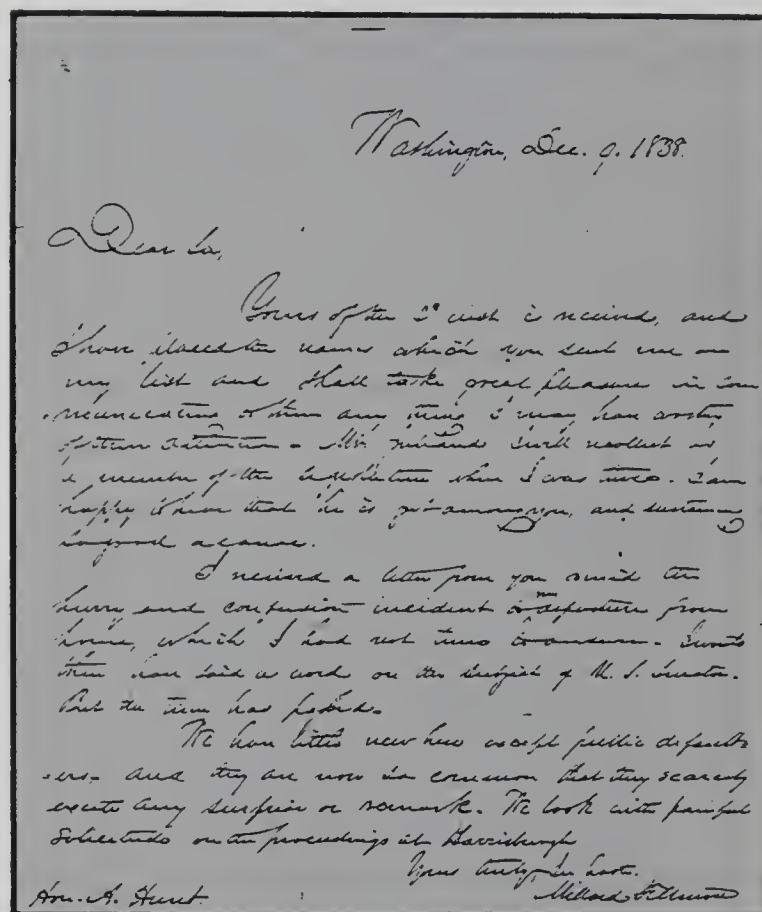 Washington, Dec. 9. 1838.
Dear Sir,
Yours of the 2d inst is received, and
I have placed the names which you sent me on
my list and shall take great pleasure in com
municating to them any thing I may have worthy
of their attention. Mr. I well recollect as
a member of the Legislature when I was there. I am
happy to know that he is yet among you, and sustaining
so good a cause.
I received a letter from you amid the
hurry and confusion incident to my departure from
home, which I had not time to answer. I would
then have said a word on the subject of U. S. Senator.
But the time has passed.
We have little new here except public default
ers, and they are now so common that they scarcely
excite any surprise or remark. We look with painful
solicitude on the proceedings at Harrisburgh
Yours truly in haste.
Millard Fillmore
Hon. A. Hunt.